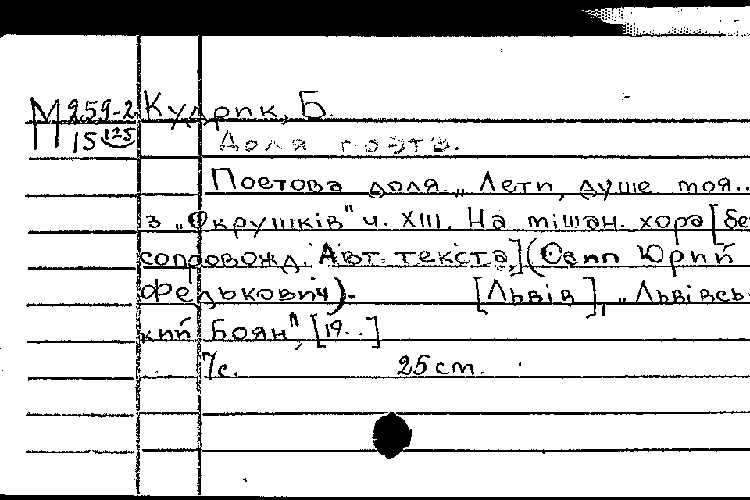 М 259-2 Кудрик, Б.
15 125 Доля поэта.
Поетова доля „ Лети, душе моя..
з „Окрушків" ч. XIII. На мішан. хора [без
сопровожд. Авт. текста,] (Осип Юрий
Федькович). [Львів], „Львівсь-
кий Боян", [19..]
7с. 25 cm.